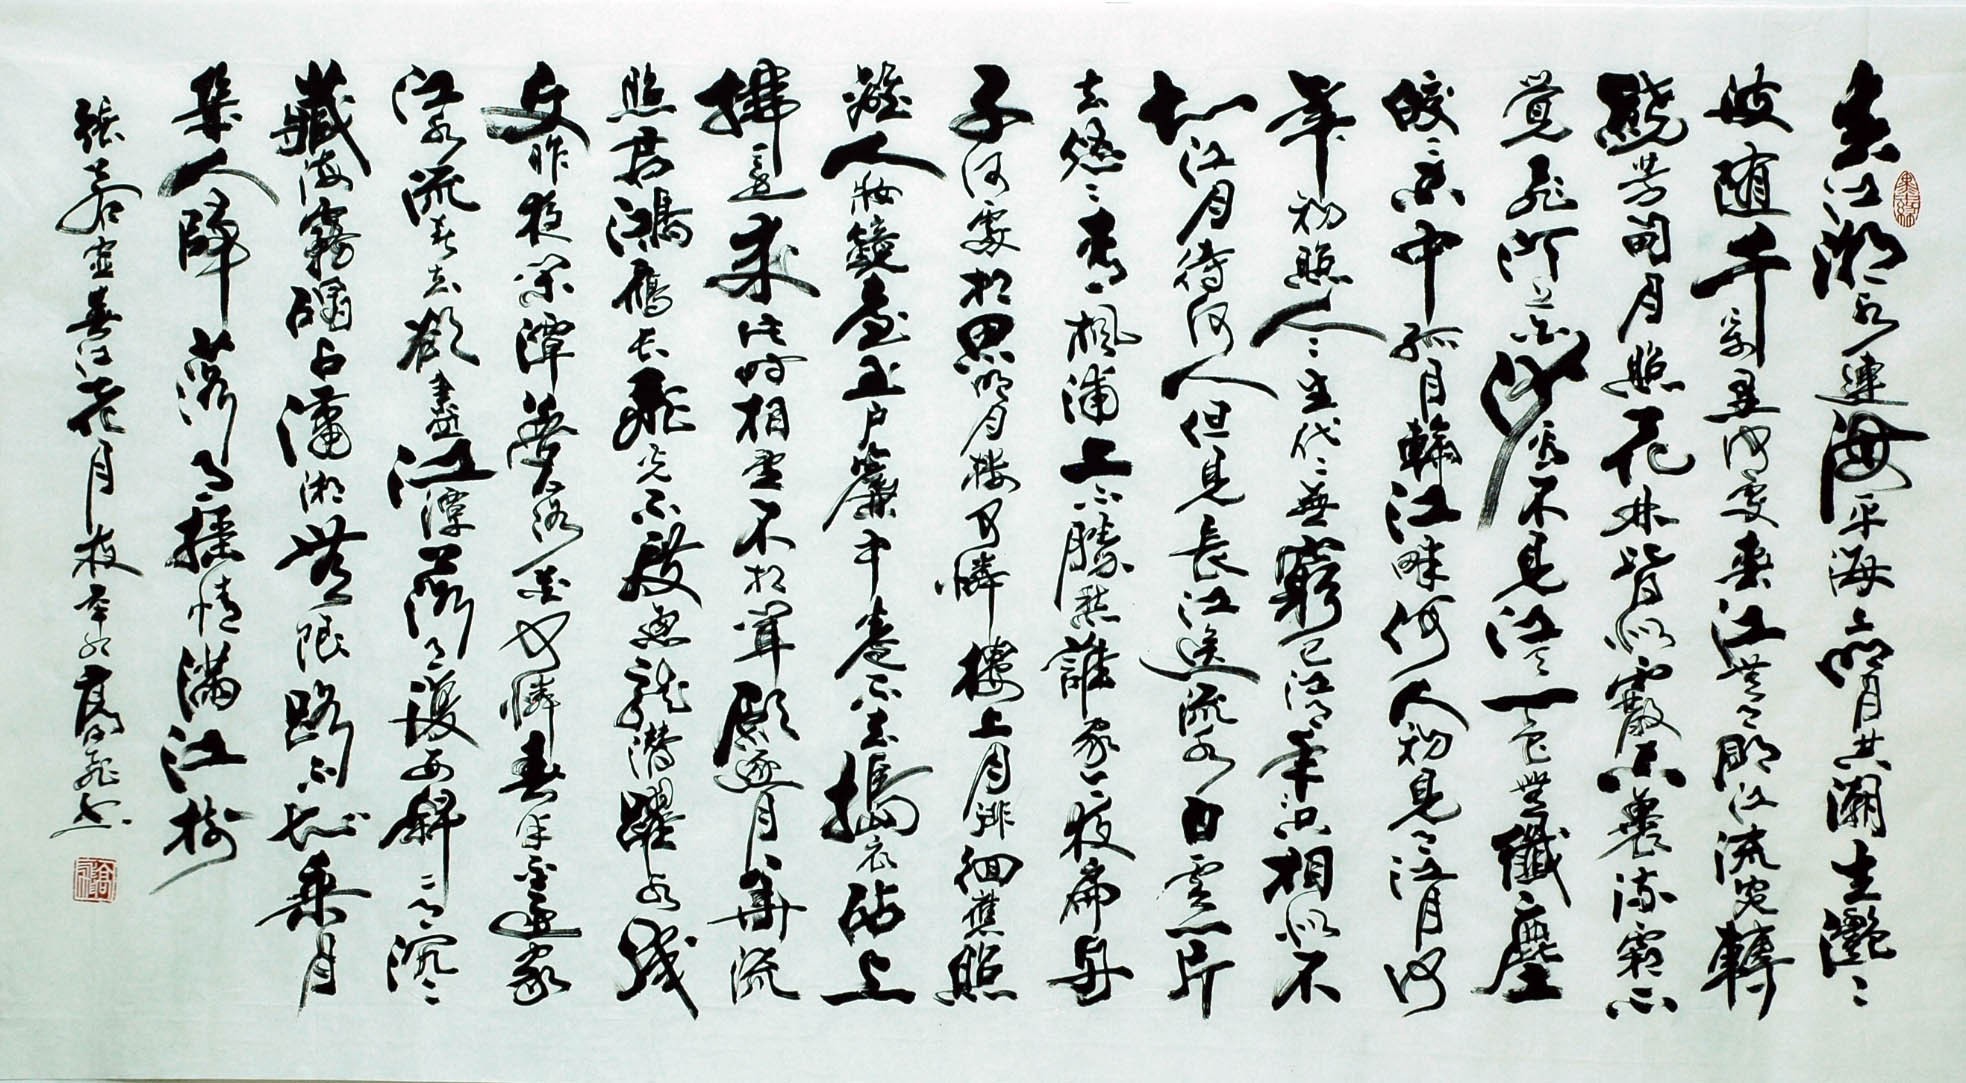 春江潮水連海平海上明月共潮生灧〻
波隨千萬里何處春江無月明江流宛轉
繞芳甸月照花林皆似霰空裏流霜不
覺飛汀上白沙看不見江天一色無纖塵
皎〻空中孤月輪江畔何人初見月江月何
年初照人人〻生代〻無窮已江月年只相似不
知江月待何人但見長江送流水白雲一片
去悠〻青楓浦上不勝愁誰家今夜扁舟
子何處相思明月樓可憐樓上月徘徊應照
離人妝鏡臺玉户簾中卷不去擣衣砧上
拂還來此時相望不相聞願逐月華流
照君鴻雁長飛光不度魚龍潛躍水成
文昨夜閑潭夢落花可憐春半不還家
江水流春去欲盡江潭落月復西斜〻月沉〻
藏海霧碣石瀟湘無限路不知乘月
幾人歸落月摇情滿江樹
張若虚春江花月夜